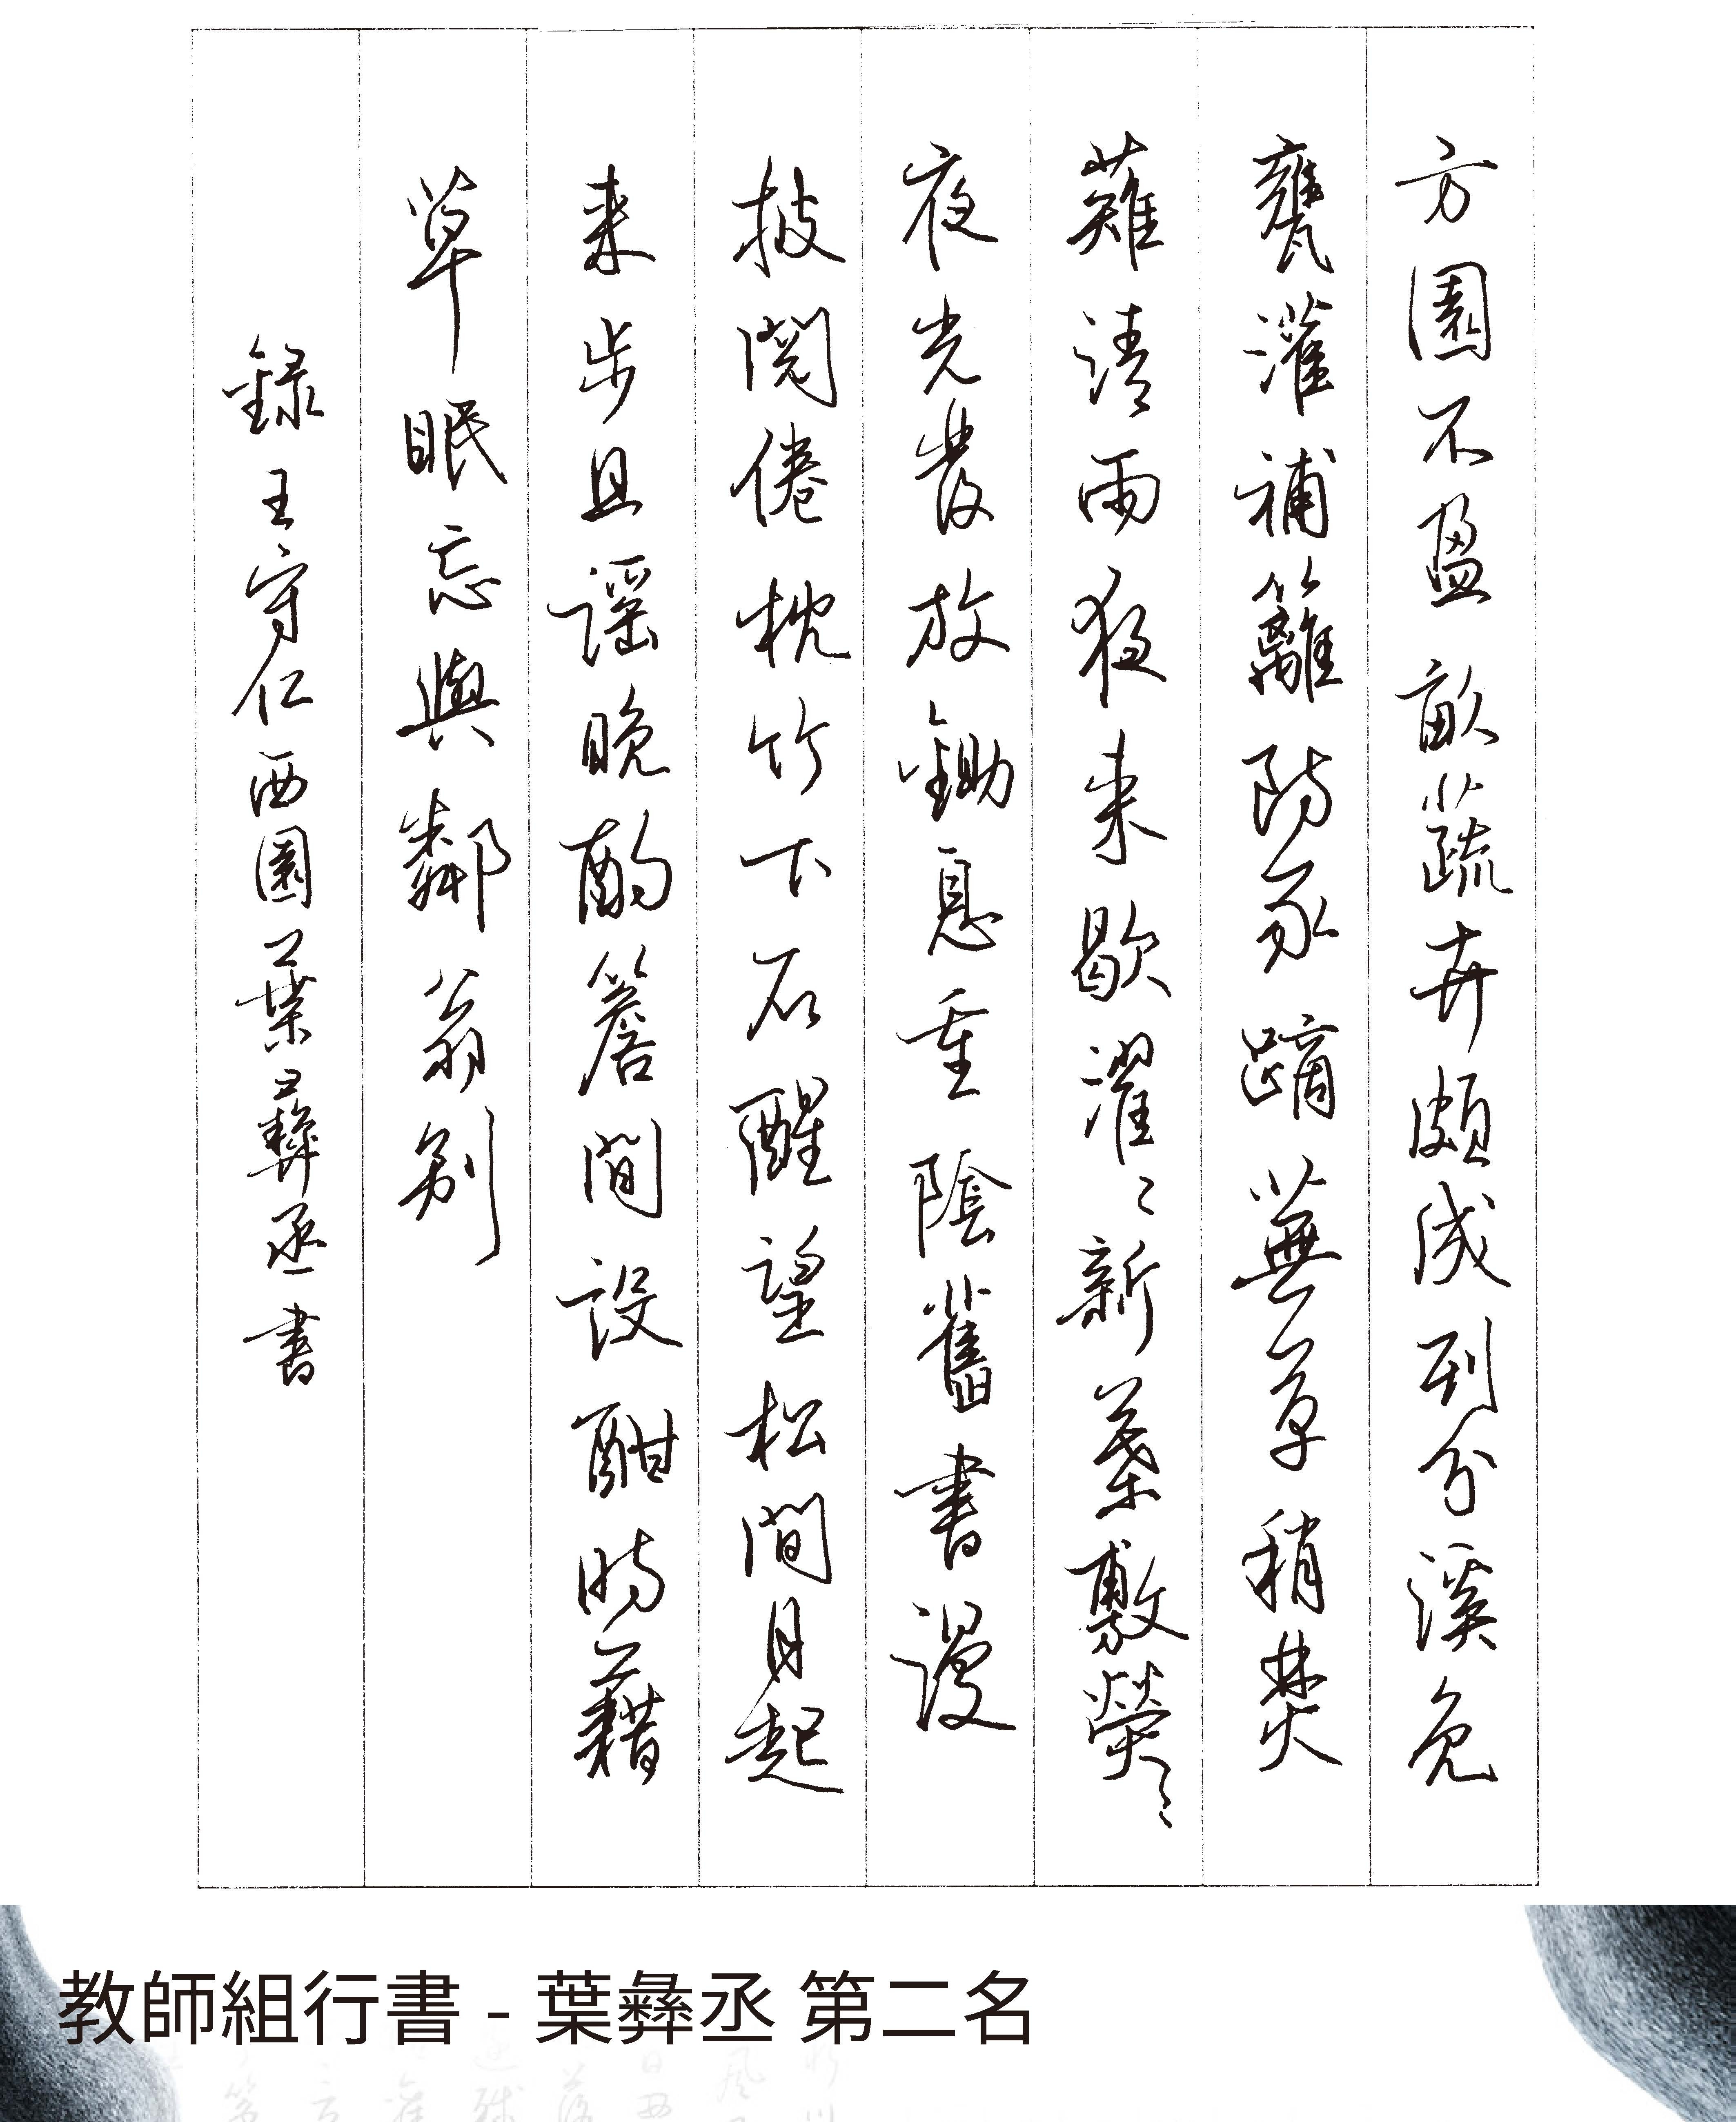 方園不盈畝蔬卉頗成列分溪免
甕灌補籬防豕蹢蕪草稍焚
薙清雨夜來歇濯〻新葉敷熒〻
夜光發放鋤息重陰舊書漫
披閱倦枕竹下石醒望松間月起
來步且謠晚酌簷間設酣時藉
草眠忘與鄰翁別
錄王守仁西園葉彝丞書
教師組行書 - 葉彝丞 第二名